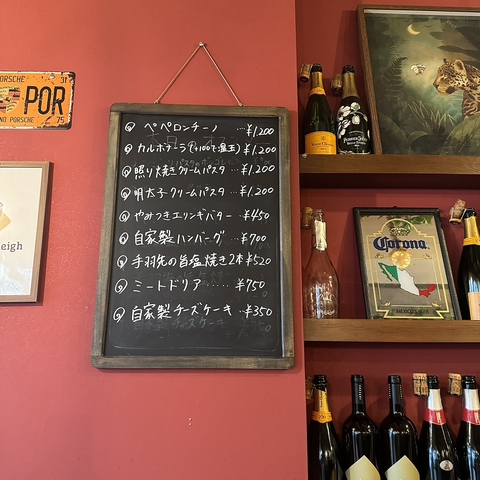 PORSCHE
31
POR
NO PORSCHE
75
eigh
◎ ペペロンチーノ …¥1,200
◎ カルボナーラ(+¥100で温玉) ¥1,200
◎ 照り焼きクリームパスタ …¥1,200
◎ 明太子クリームパスタ …¥1,200
◎ やみつきエリンギバター …¥450
◎ 自家製ハンバーグ …¥700
◎ 手羽先の旨塩焼き2本 ¥520
◎ ミートドリア ……¥750
◎ 自家製チーズケーキ …¥350
Corona